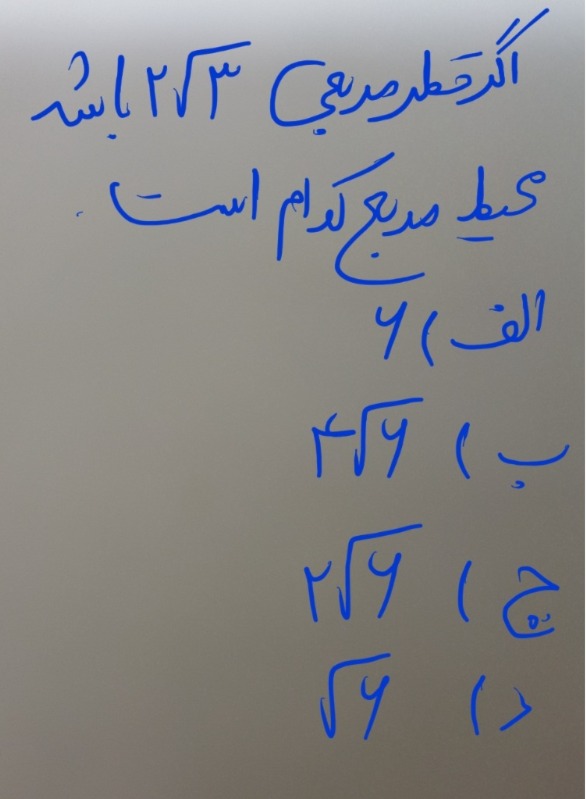 اگر قطر مربعی ۲√۳ باشد
محیط مربع کدام است.
الف) ۶
ب) ۴√۶
ج) ۲√۶
د) √۶